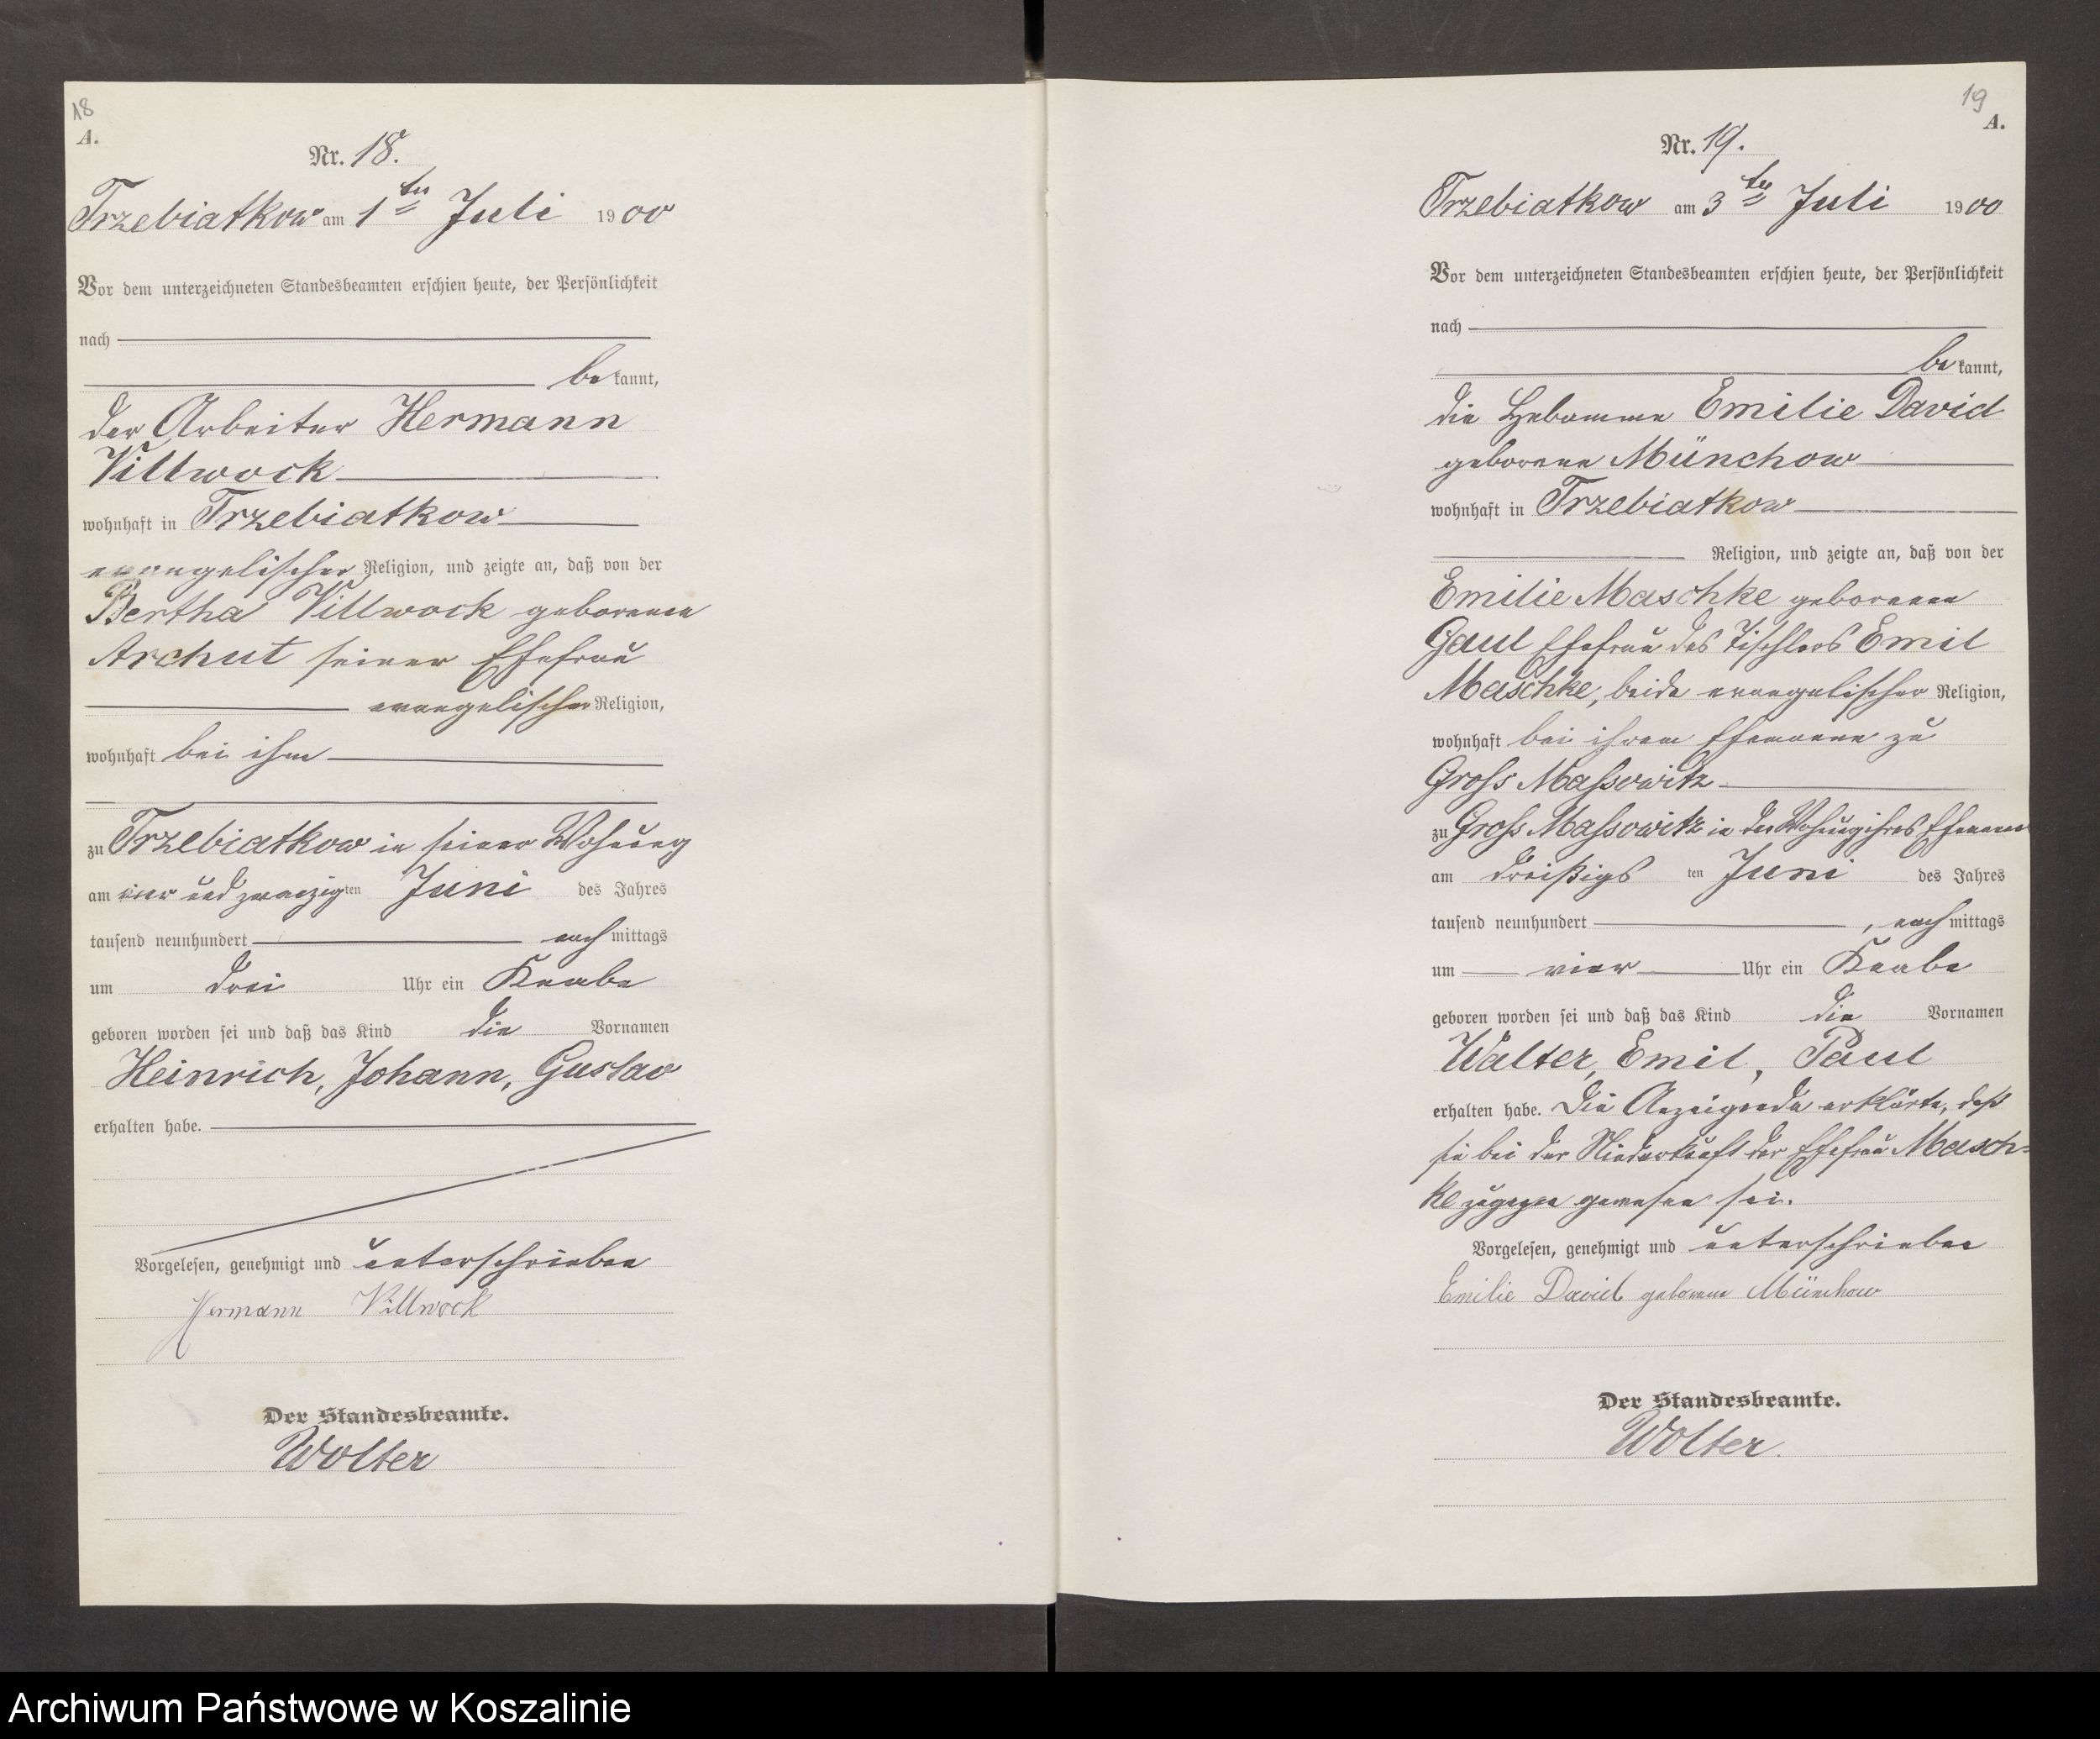 18
A.
Nr. 18.
Trzebiatkow am 1ten Juli 1900
Vor dem unterzeichneten Standesbeamten erschien heute, der Persönlichkeit
nach
bekannt,
der Arbeiter Hermann
Villwock
wohnhaft in Trzebiatkow
evangelischer Religion, und zeigte an, daß von der
Bertha Villwock geborenen
Archut seiner Ehefrau
evangelischer Religion,
wohnhaft bei ihm
zu Trzebiatkow in seiner Wohnung
am vier und zwanzigten Juni des Jahres
tausend neunhundert nachmittags
um drei Uhr ein Knabe
geboren worden sei und daß das Kind die Vornamen
Heinrich, Johann, Gustav
erhalten habe.
Vorgelesen, genehmigt und unterschrieben
Hermann Villwock
Der Standesbeamte.
Wolter
19
A.
Nr. 19.
Trzebiatkow am 3ten Juli 1900
Vor dem unterzeichneten Standesbeamten erschien heute, der Persönlichkeit
nach
bekannt,
die Hebamme Emilie David
geborene Münchow
wohnhaft in Trzebiatkow
Religion, und zeigte an, daß von der
Emilie Maschke geborenen
Gaul Ehefrau des Tischlers Emil
Maschke, beide evangelischer Religion,
wohnhaft bei ihrem Ehemann zu
Gross Massowitz
zu Gross Massowitz in der Wohnung ihres Ehemannes
am dreißigsten Juni des Jahres
tausend neunhundert, nachmittags
um vier Uhr ein Knabe
geboren worden sei und daß das Kind die Vornamen
Walter, Emil, Paul
erhalten habe. Die Anzeigende erklärte, daß
sie bei der Niederkunft der Ehefrau Masch=
ke zugegen gewesen sei.
Vorgelesen, genehmigt und unterschrieben
Emilie David geborene Münchow
Der Standesbeamte.
Wolter.
Archiwum Państwowe w Koszalinie